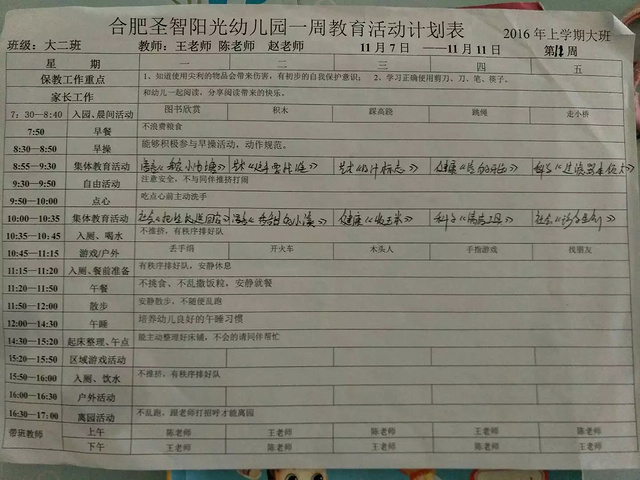 合肥圣智阳光幼儿园一周教育活动计划表 2016年上学期大班
班级：大二班 教师：王老师 陈老师 赵老师 11月7日 ——11月11日 第12周
星 期 一 二 三 四 五
保教工作重点 1、知道使用尖利的物品会带来伤害，有初步的自我保护意识； 2、学习正确使用剪刀、刀、笔、筷子。
家长工作 和幼儿一起阅读，分享阅读带来的快乐。
7：30—8:40 入园、晨间活动 图书欣赏 积木 踩高跷 跳绳 走小桥
7:50 早餐 不浪费粮食
8:30—8:50 早操 能够积极参与早操活动，动作规范。
8:55—9:30 集体教育活动
9:30—9:50 自由活动 注意安全，不与同伴推挤打闹
9:50—10:00 点心 吃点心前主动洗手
10:00—10:35 集体教育活动 健康 社会
10:35—10:45 入厕、喝水 不推挤，有秩序排好队
10:45—11:15 游戏/户外 丢手绢 开火车 木头人 手指游戏 找朋友
11:15—11:20 入厕、餐前准备 有秩序排好队，安静休息
11:20—11:50 午餐 不挑食、不乱撒饭粒，安静就餐
11:50—12:00 散步 安静散步，不随便乱跑
12:00—14:30 午睡 培养幼儿良好的午睡习惯
14:30—15:20 起床整理、午点 能主动整理好床铺，不会的请同伴帮忙
15:20—15:50 区域游戏活动
15:50—16:00 入厕、饮水 不推挤，有秩序排好队
16:00—16:30 户外活动
16:30—17:00 离园活动 不乱跑，跟老师打招呼才能离园
带班教师 上午 陈老师 王老师 陈老师 王老师 陈老师
下午 王老师 陈老师 王老师 陈老师 王老师